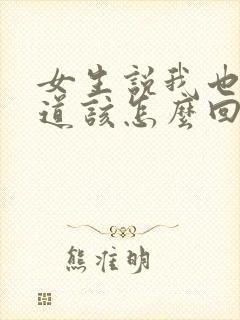 女生說我也
道該怎麼回
熊准明